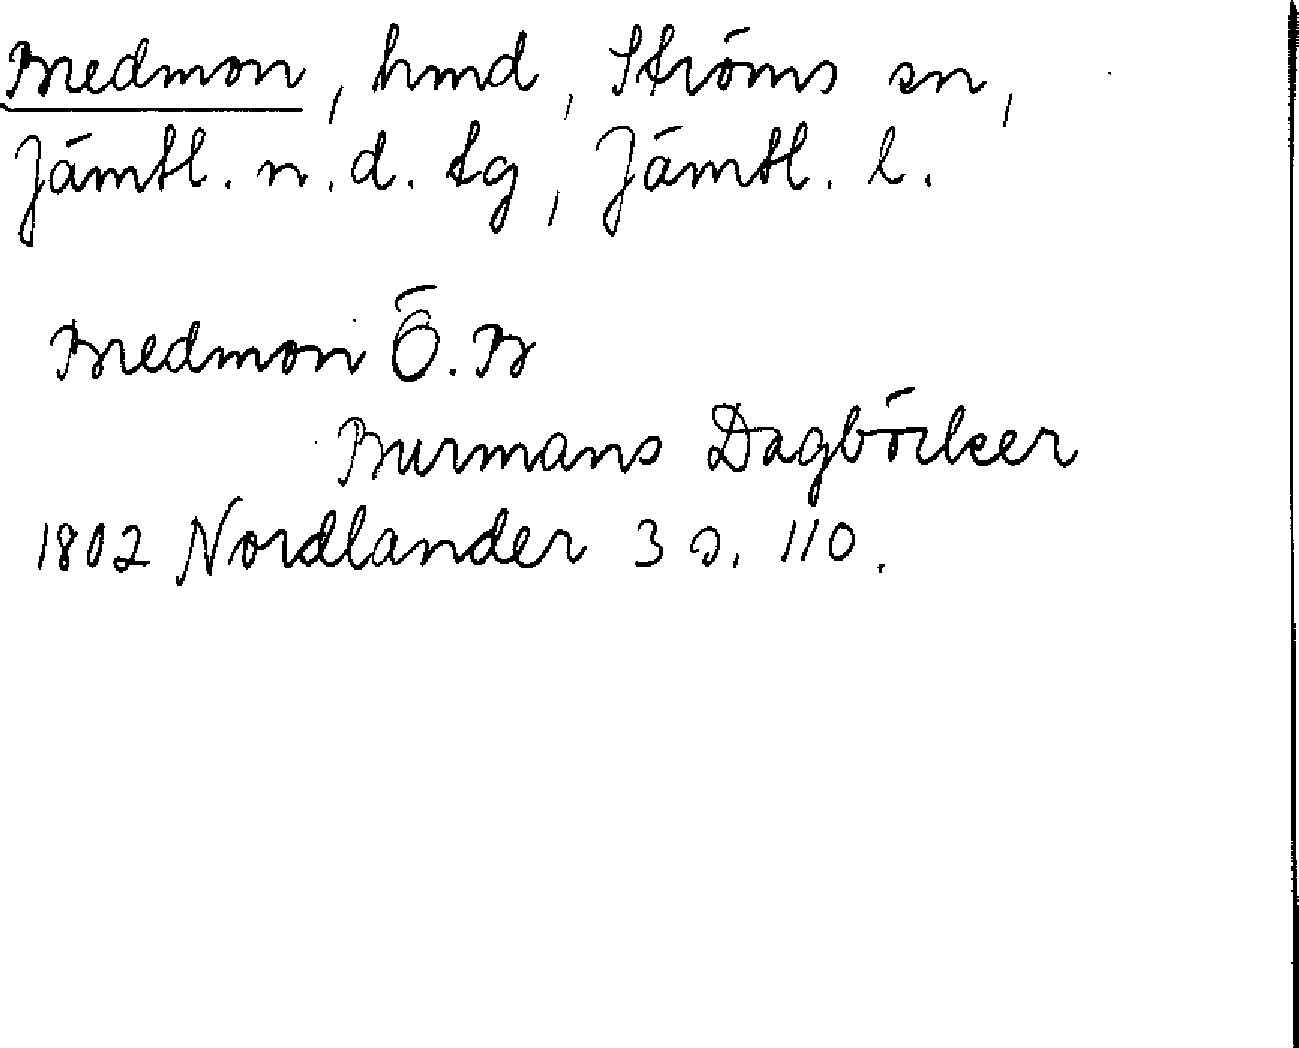 Bredmon, hmd, Ströms sn,
Jämtl. n. d. tg, Jämtl. l.
Bredmon Ö. B
Burmans Dagböcker
1802 Nordlander 3 s. 110.